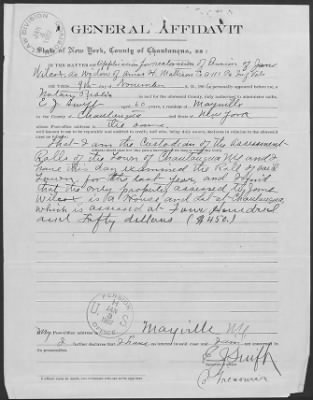 GENERAL AFFIDAVIT
State of New York, County of Chautauqua, ss:
IN THE MATTER OF Application for restoration of Pension of Jane
Wilcox, as Widow of H. Co 111 Pa
on this 9th day of November A. D. 19 personally appeared before a
Notary Public in and for the aforesaid County, duly authorized to administer oaths,
E J Swift aged 60 years, a resident of Mayville
in the County of Chautauqua and State of New York
whose Post-office address is the same
well known to be reputable and entitled to credit, and who, being duly sworn, declares in relation to the aforesaid
case as follows:
That I am the Custodian of the assessment
Rolls of the Town of Chautauqua NY and I
have this day examined the Roll of said
Town for the last year, and I find
that the only property assessed to Jane
Wilcox, is a House and Lot at Chautauqua,
which is assessed at Four Hundred
and Fifty dollars ($450.)
PENSION
U. S.
OFFICE
JAN
My Post-office address is Mayville NY
I further declare that I have no interest in said case and am not concerned in
its prosecution.
E J Swift
Treasurer